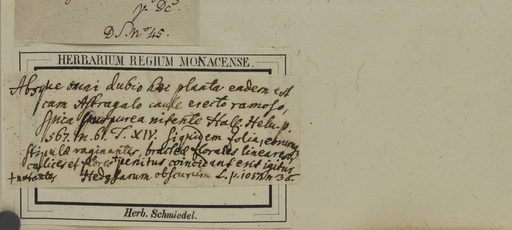 γ. Dc.
D. S. No. 45.
HERBARIUM REGIUM MONACENSE.
Absque omni dubio hæc planta eadem est
cum Astragalo caule erecto ramoso,
spica purpurea nitente Hall. Helv. p.
567. n. 6. T. XIV. Siquidem folia, eorum
stipulæ vaginantes, bracteæ florales lineares,
calices et flores penitus coincidant erit igitur
+ notantes Hedysarum obscurum L. p. 1057. n. 36.
Herb. Schmiedel.